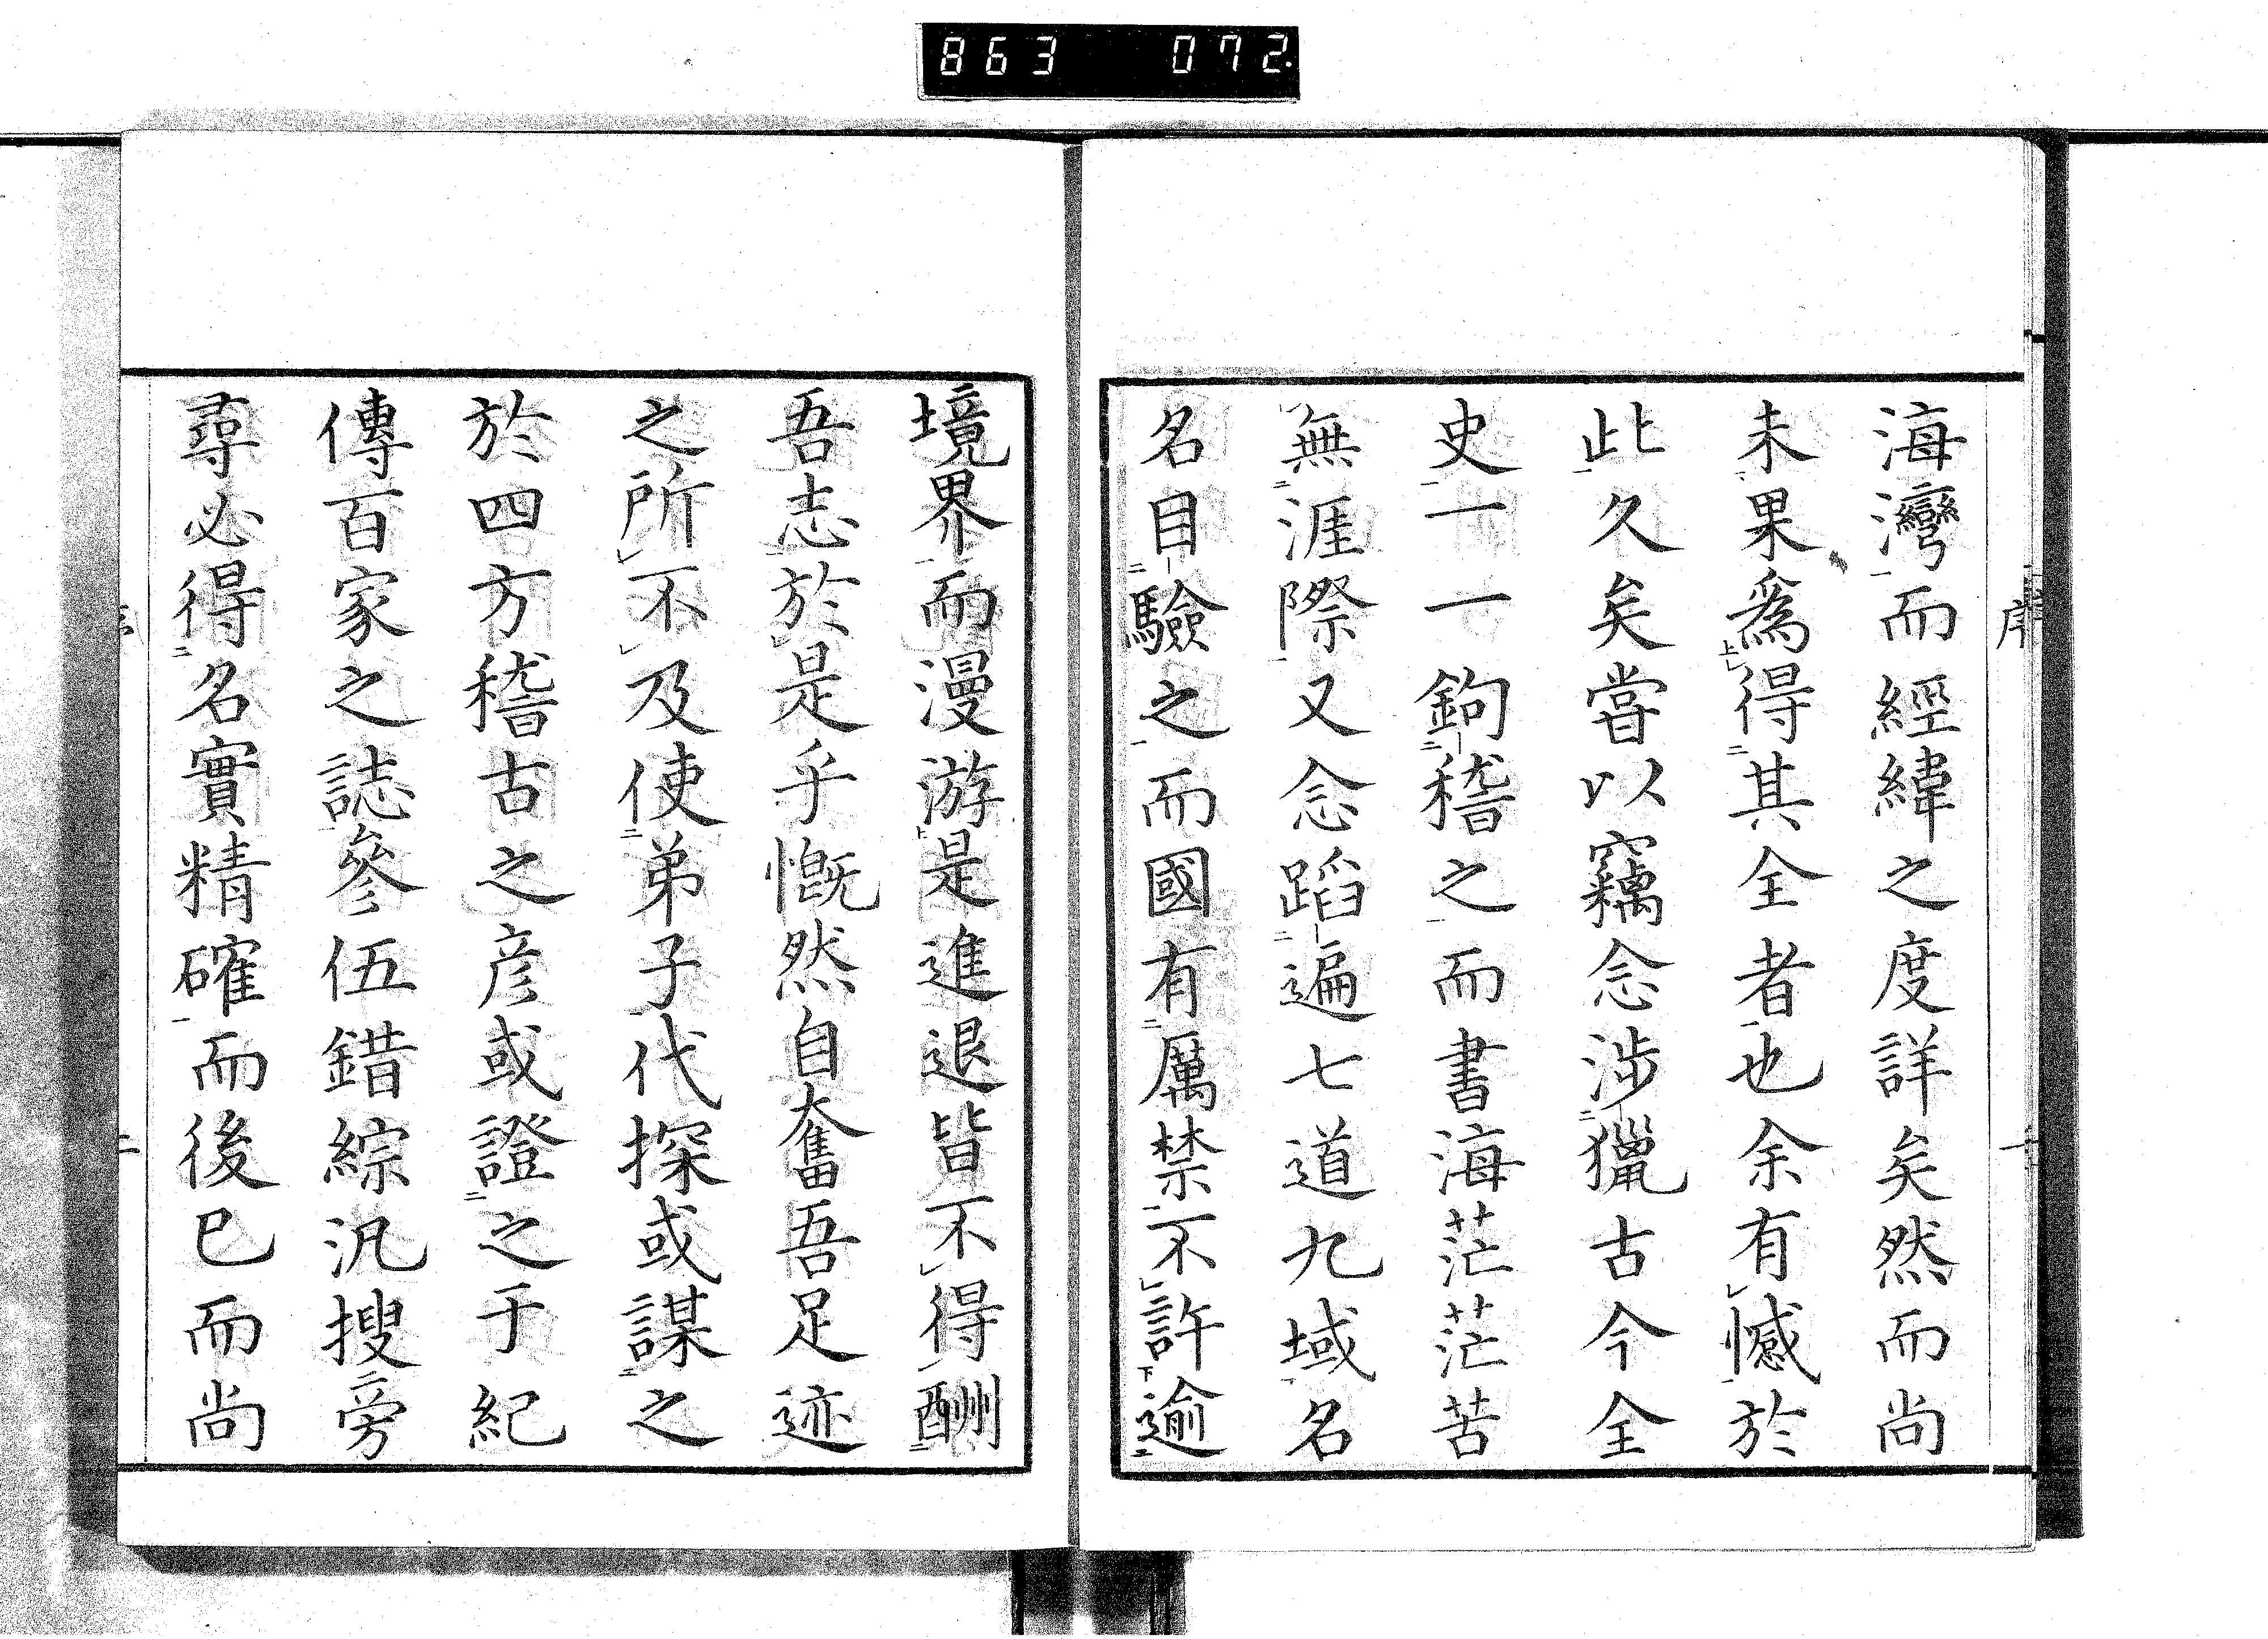 863 072
序 一
海灣而經緯之度詳矣然而尚
未果爲得其全者也余有憾於
此久矣嘗以竊念涉獵古今全
史一一鉤稽之而書海茫茫苦
無涯際又念蹈遍七道九域名
名目驗之而國有厲禁不許逾
境界而漫游是進退皆不得酬
吾志於是乎慨然自奮吾足迹
之所不及使弟子代探或謀之
於四方稽古之彦或證之于紀
傳百家之誌參伍錯綜汎搜旁
尋必得名實精確而後已而尚
二